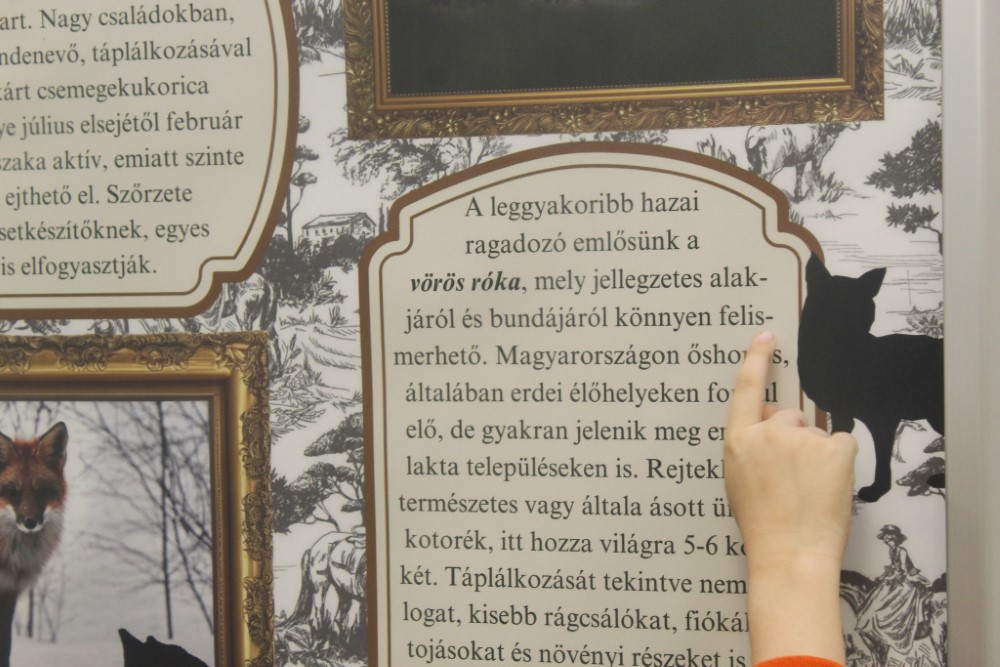 art. Nagy családokban,
ndenevő, táplálkozásával
kárt csemegekukorica
ye július elsejétől február
szaka aktív, emiatt szinte
ejthető el. Szőrzete
setkészítőknek, egyes
is elfogyasztják.
A leggyakoribb hazai
ragadozó emlősünk a
vörös róka, mely jellegzetes alak-
járól és bundájáról könnyen felis-
merhető. Magyarországon
általában erdei élőhelyeken
elő, de gyakran jelenik meg
lakta településeken is.
természetes vagy általa ásott
kotorék, itt hozza világra 5-6
két. Táplálkozását tekintve nem
logat, kisebb rágcsálókat,
tojásokat és növényi részeket is